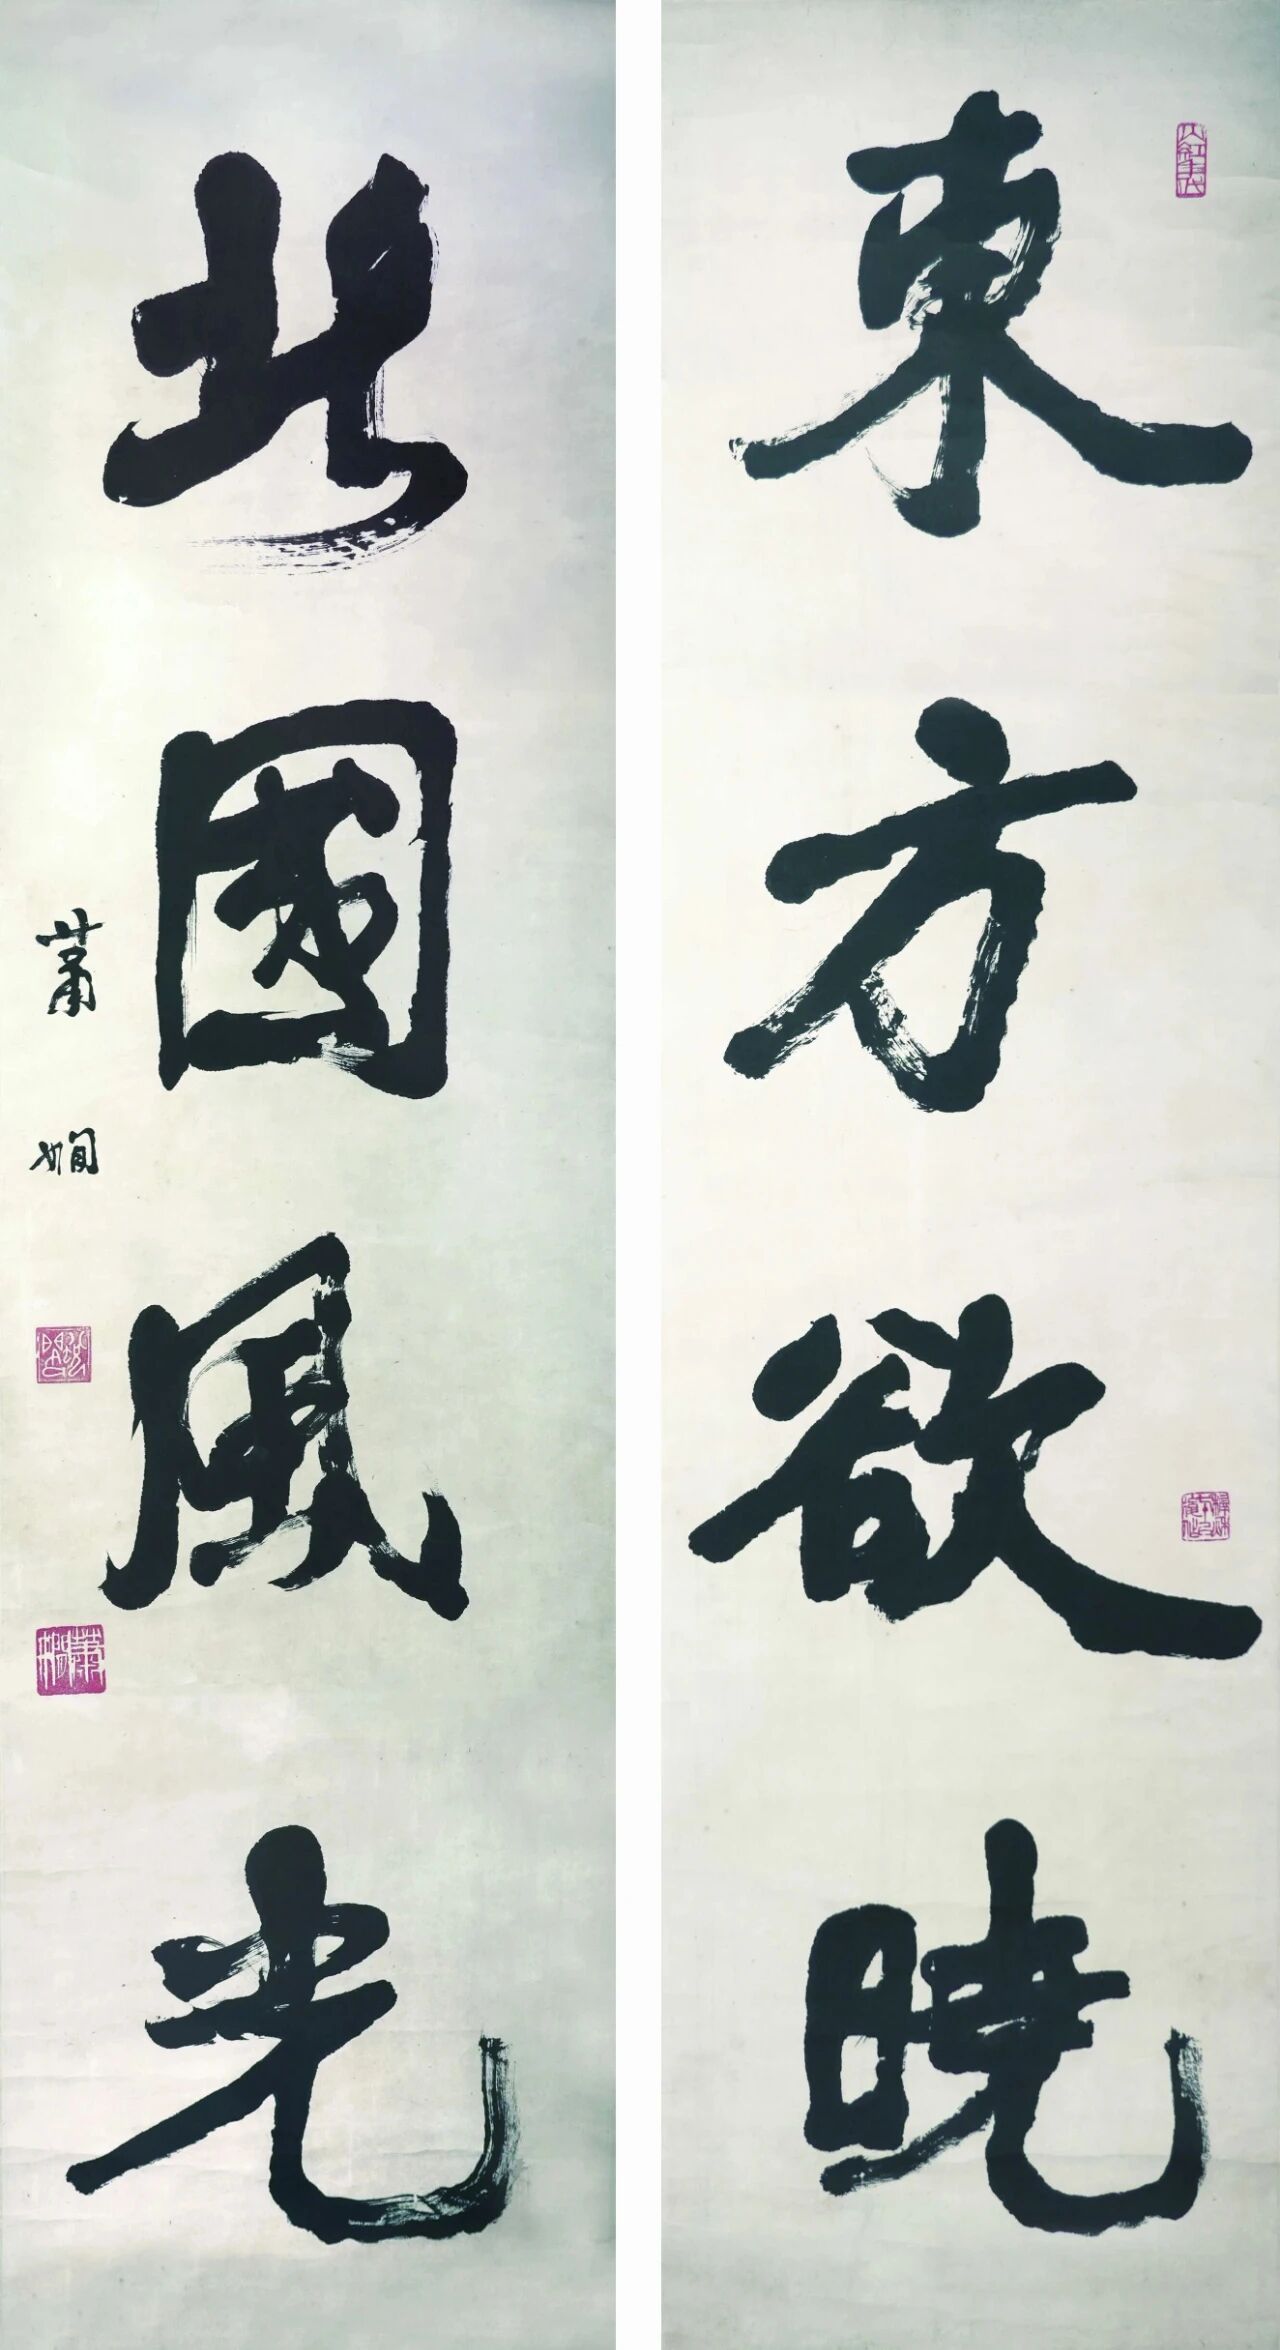 東方欲曉
北國風光
蕭嫻